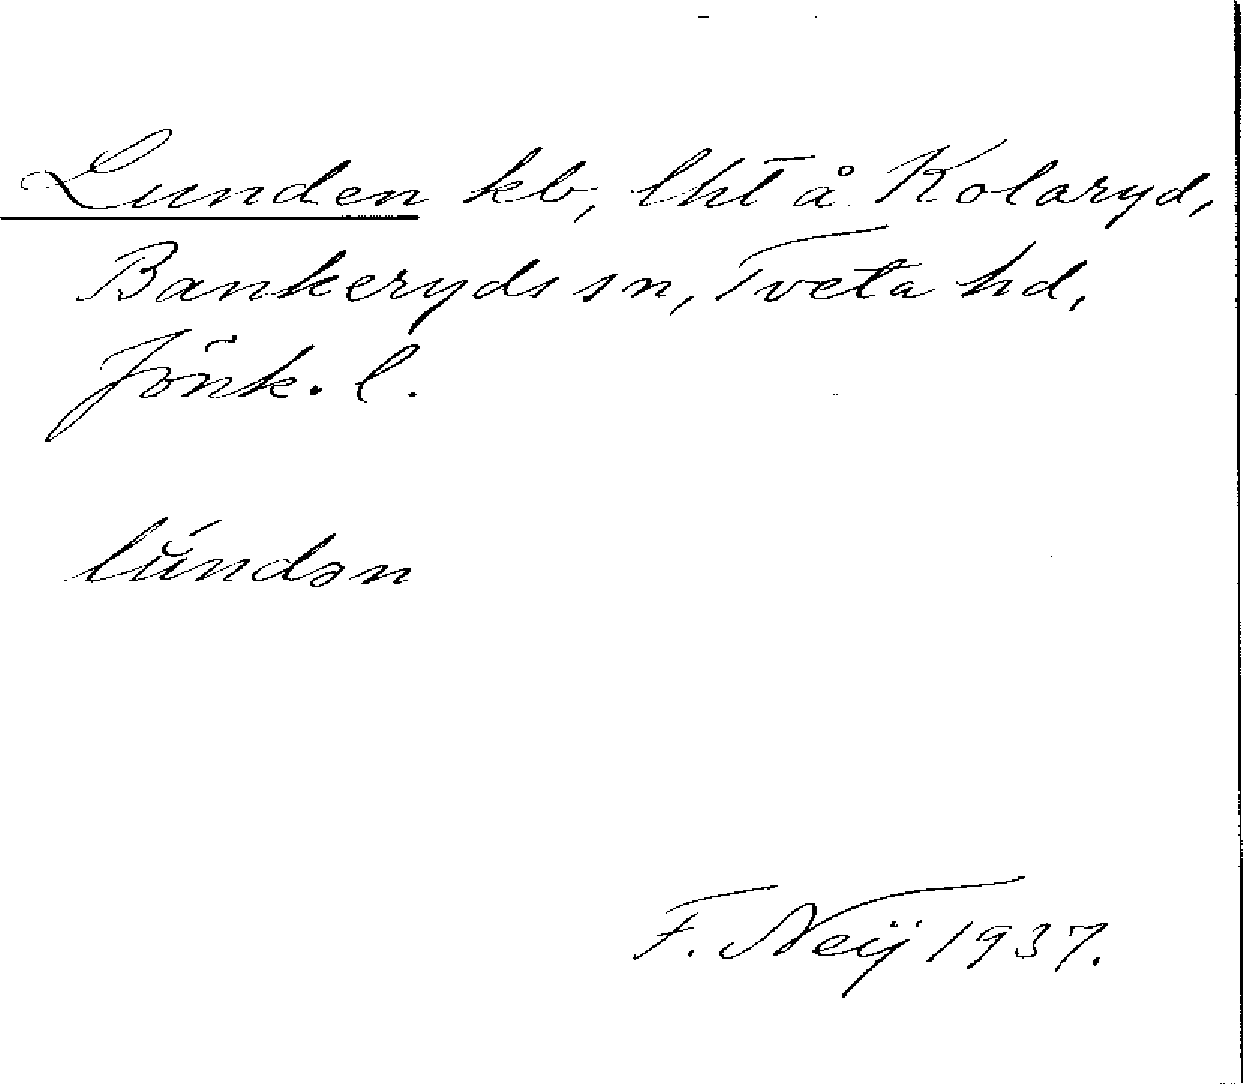 Lunden kb, lht å Kolaryd,
Bankeryds sn, Tveta hd,
Jönk. l.
lǔ́ndən
F. Neij 1937.